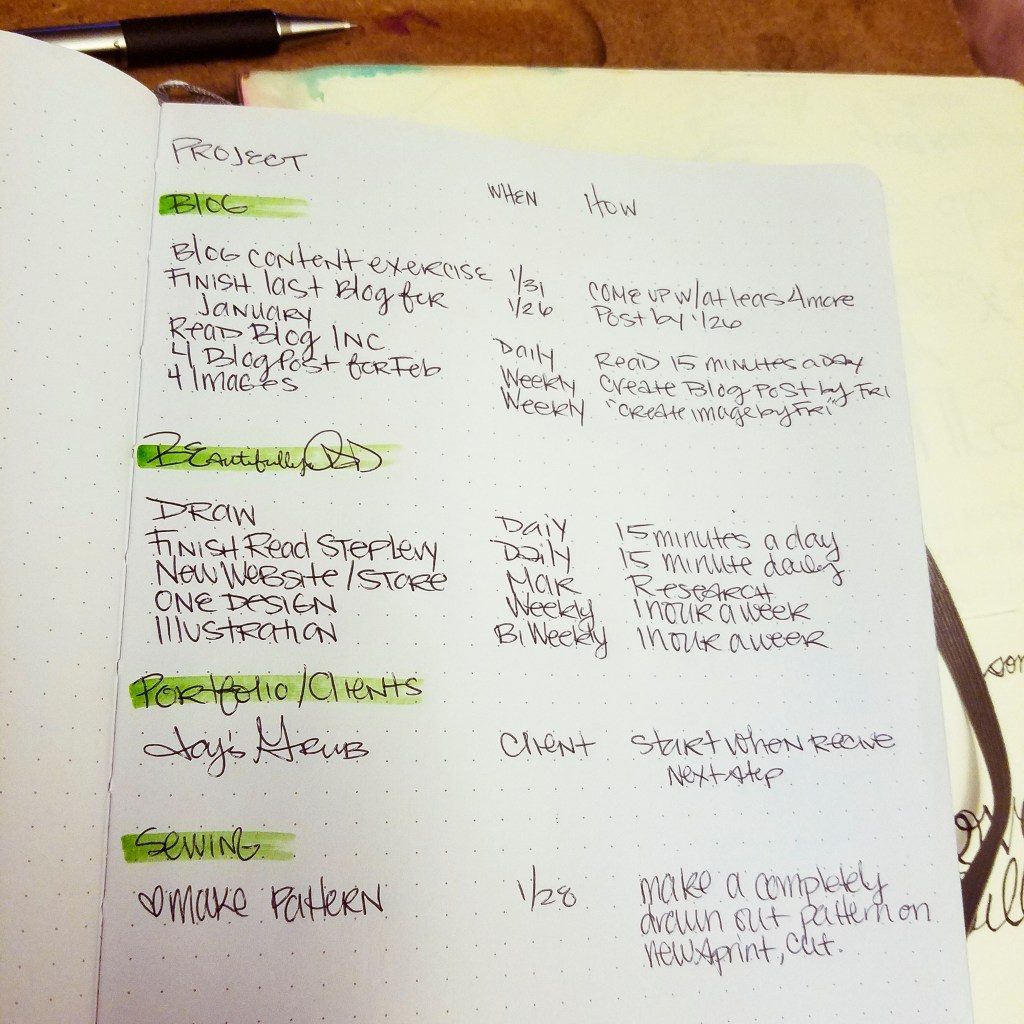 PROJECT
WHEN HOW
BLOG
BLOG CONTENT EXERCISE 1/31 COME UP W/ at leas 4 more
FINISH last Blog for 1/26 Post by 1/26
JANUARY
READ Blog INC Daily READ 15 minutes a day
4 Blog Post for Feb Weekly Create Blog Post by FRI
4 Images Weekly "create image by FRI"
DRAW Daiy 15 minutes a day
FINISH Read Daily 15 minute daily
NEW WEBSITE / STORE MAR RESEARCH
ONE DESIGN Weekly 1 hour a week
ILLUSTRATION Bi Weekly 1 hour a week
Portfolio / Clients
Joy's Grub Client Start when Recive
Next step
SEWING
♡ make PATTERN 1/28 make a completely
drawn out pattern on
newsprint, cut.